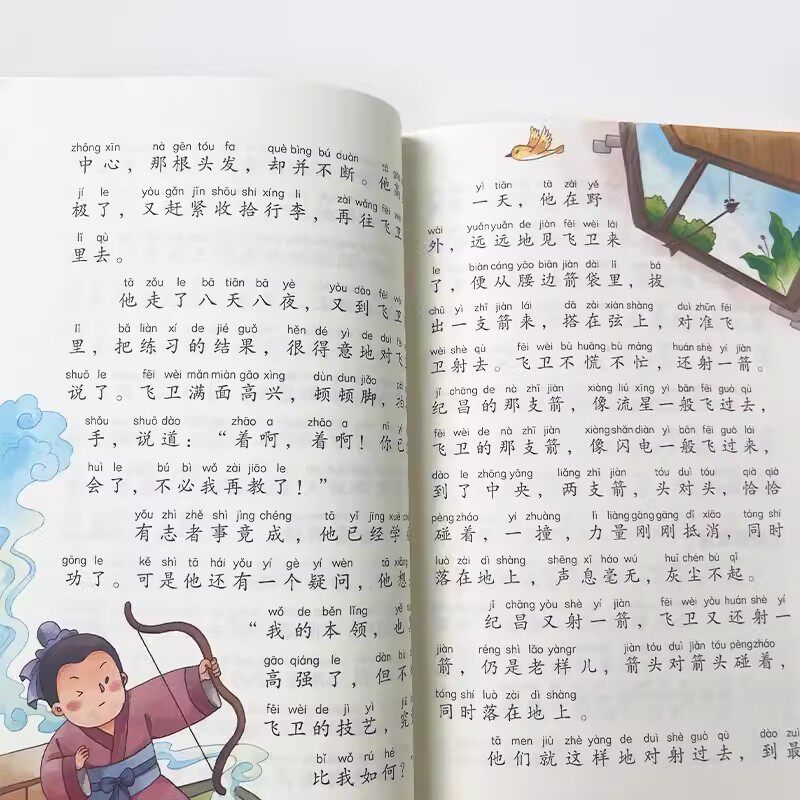 zhōng xīn nà gēn tóu fa què bìng bú duàn tā
中心，那根头发，却并不断。他高
jí le yòu gǎn jǐn shōu shi xíng li zài wǎng fēi wèi
极了，又赶紧收拾行李，再往飞卫
lǐ qù
里去。
tā zǒu le bā tiān bā yè yòu dào fēi wèi
他走了八天八夜，又到飞卫
lǐ bǎ liàn xí de jié guǒ hěn dé yì de duì fēi
里，把练习的结果，很得意地对飞
shuō le fēi wèi mǎn miàn gāo xìng dùn dun jiǎo
说了。飞卫满面高兴，顿顿脚，
shǒu shuō dào zháo a zháo a nǐ yǐ
手，说道：“着啊，着啊！你已
huì le bú bì wǒ zài jiāo le
会了，不必我再教了！”
yǒu zhì zhě shì jìng chéng tā yǐ jīng xué
有志者事竟成，他已经学
gōng le kě shì tā hái yǒu yí gè yí wèn tā xiǎng
功了。可是他还有一个疑问，他想
wǒ de běn lǐng yě
“我的本领，也
gāo qiáng le dàn bù
高强了，但不
fēi wèi de jì yì
飞卫的技艺，究
bǐ wǒ rú hé
比我如何？
yì tiān tā zài yě
一天，他在野
wài yuǎn yuǎn de jiàn fēi wèi lái
外，远远地见飞卫来
le biàn cóng yāo biān jiàn dài lǐ bá
了，便从腰边箭袋里，拔
chū yì zhī jiàn lái dā zài xián shàng duì zhǔn fēi
出一支箭来，搭在弦上，对准飞
wèi shè qù fēi wèi bù huāng bù máng huán shè yí jiàn
卫射去。飞卫不慌不忙，还射一箭。
jǐ chāng de nà zhī jiàn xiàng liú xīng yì bān fēi guò qù
纪昌的那支箭，像流星一般飞过去，
fēi wèi de nà zhī jiàn xiàng shǎn diàn yì bān fēi guò lái
飞卫的那支箭，像闪电一般飞过来，
dào le zhōng yāng liǎng zhī jiàn tóu duì tóu qià qià
到了中央，两支箭，头对头，恰恰
pèng zháo yí zhuàng lì liàng gāng gāng dǐ xiāo tóng shí
碰着，一撞，力量刚刚抵消，同时
luò zài dì shàng shēng xī háo wú huī chén bù qǐ
落在地上，声息毫无，灰尘不起。
jǐ chāng yòu shè yí jiàn fēi wèi yòu huán shè yí
纪昌又射一箭，飞卫又还射一
jiàn réng shì lǎo yàng r jiàn tóu duì jiàn tóu pèng zháo
箭，仍是老样儿，箭头对箭头碰着，
tóng shí luò zài dì shàng
同时落在地上。
tā men jiù zhè yàng de duì shè guò qù dào zuì
他们就这样地对射过去，到最